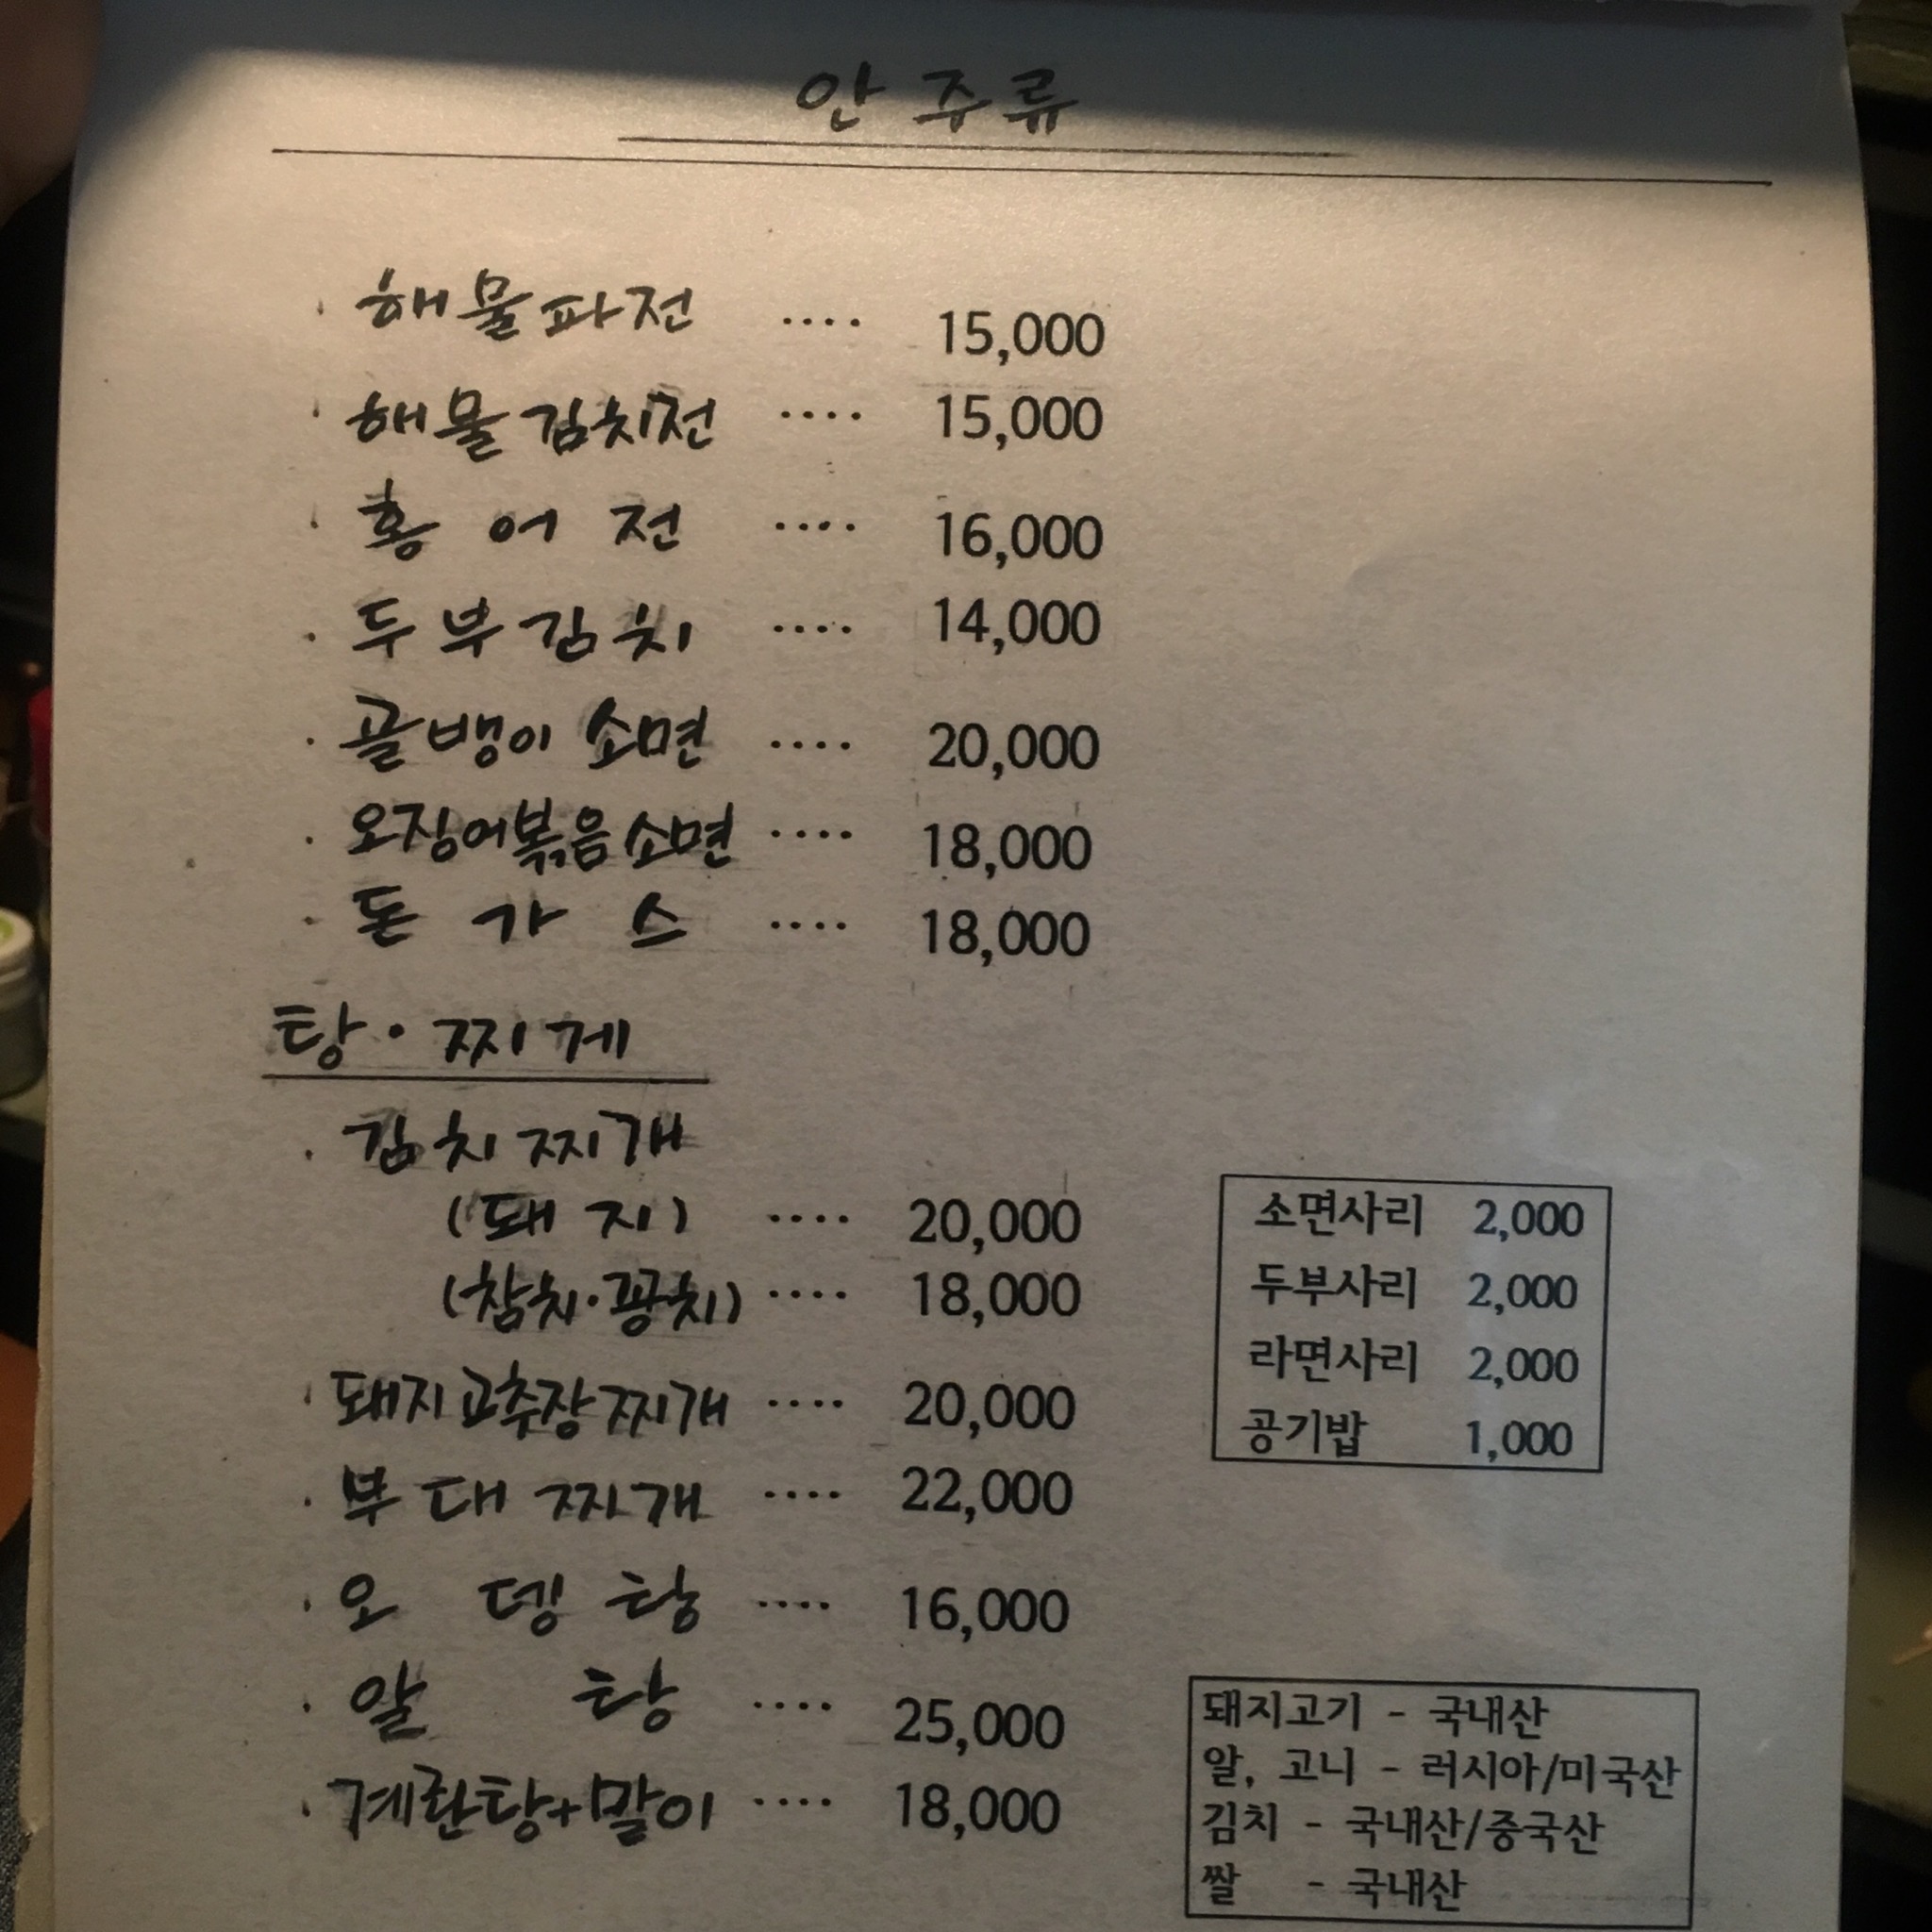 안주류
· 해물파전 ···· 15,000
· 해물김치전 ···· 15,000
· 홍어전 ···· 16,000
· 두부김치 ···· 14,000
· 골뱅이 소면 ···· 20,000
· 오징어볶음소면 ···· 18,000
· 돈가스 ···· 18,000
탕·찌게
· 김치찌개
(돼지) ···· 20,000
(참치·꽁치) ···· 18,000
· 돼지고추장찌개 ···· 20,000
· 부대찌개 ···· 22,000
· 오뎅탕 ···· 16,000
· 알탕 ···· 25,000
· 계란탕+말이 ···· 18,000
소면사리 2,000
두부사리 2,000
라면사리 2,000
공기밥 1,000
돼지고기 - 국내산
알, 고니 - 러시아/미국산
김치 - 국내산/중국산
쌀 - 국내산